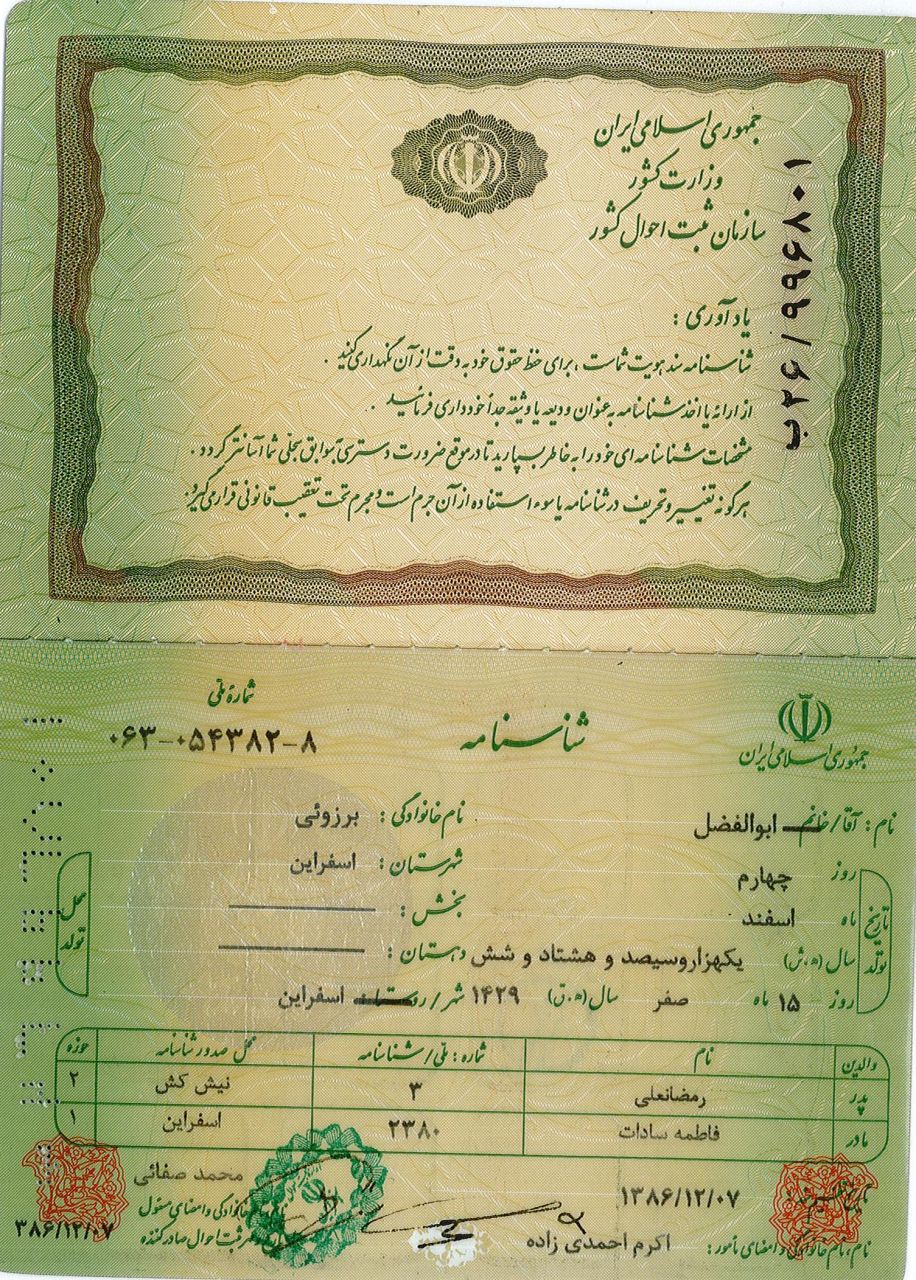 جمهوری اسلامی ایران
وزارت کشور
سازمان ثبت احوال کشور
ب۲۶/۹۹۶۸۰۱
یادآوری :
شناسنامه سند هویت شماست ، برای حفظ حقوق خود به دقت از آن نگهداری کنید .
از ارائه یا اخذ شناسنامه به عنوان ودیعه یا وثیقه جداً خودداری فرمائید .
مشخصات شناسنامه ای خود را به خاطر بسپارید تا در موقع ضرورت دسترسی به سوابق سجلی شما آسانتر گردد .
هرگونه تغییر و تحریف در شناسنامه یا سوء استفاده از آن جرم است و مجرم تحت تعقیب قانونی قرار می گیرد.
جمهوری اسلامی ایران
شناسنامه
شماره ملی
۰۶۳-۰۵۴۳۸۲-۸
نام : آقا/خانم ابوالفضل نام خانوادگی : برزوئی
تاریخ تولد
روز چهارم
ماه اسفند
سال (ه.ش) یکهزاروسیصد و هشتاد و شش
روز ۱۵ ماه صفر سال (ه.ق) ۱۴۲۹
محل تولد
شهرستان : اسفراین
بخش :
دهستان :
شهر/روستا اسفراین
والدین نام شماره : ملی/شناسنامه محل صدور شناسنامه حوزه
پدر رمضانعلی ۳ نیش کش ۲
مادر فاطمه سادات ۲۳۸۰ اسفراین ۱
تاریخ ۱۳۸۶/۱۲/۰۷
نام، نام خانوادگی و امضای مأمور : اکرم احمدی زاده
محمد صفائی
خانوادگی و امضای مسئول
ثبت احوال صادرکننده
۳۸۶/۱۲/۰۷